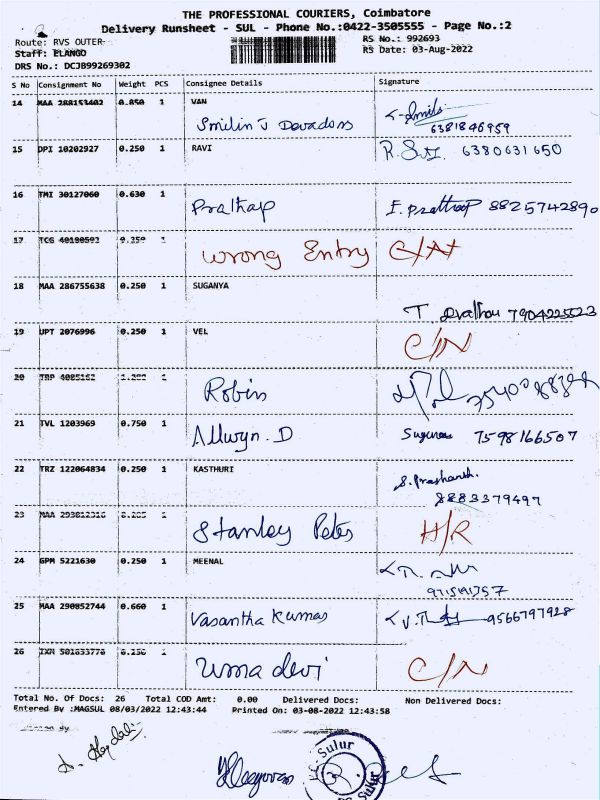 THE PROFESSIONAL COURIERS, Coimbatore
Delivery Runsheet - SUL - Phone No.:0422-3505555 - Page No.:2
Route: RVS OUTER
Staff: ELANGO
DRS No.: DCJB99269302
RS No.: 992693
RS Date: 03-Aug-2022
S No Consignment No Weight PCS Consignee Details Signature
14 MAA 288153402 0.850 1 VAN
Smilin J Devadoss 6381846959
15 DPI 10202927 0.250 1 RAVI 6380631650
16 TMI 30127060 0.630 1
Prathap I. Prathap 8825742890
17 TCG 40180592 0.250 1
Wrong Entry
18 MAA 286755638 0.250 1 SUGANYA
7904225523
19 UPT 2076996 0.250 1 VEL C/N
20 TRP 1
Robin
21 TVL 1203969 0.750 1
Allwyn. D 7598166507
22 TRZ 122064834 0.250 1 KASTHURI
S. Prashanth.
8883379497
23 MAA 1
Stanley Peter H/R
24 GPM 5221630 0.250 1 MEENAL
25 MAA 290852744 0.660 1
Vasantha Kumar 9566797928
26 IXM 501833778 0.250 1
Uma devi C/N
Total No. Of Docs: 26 Total COD Amt: 0.00 Delivered Docs: Non Delivered Docs:
Entered By :MAGSUL 08/03/2022 12:43:44 Printed On: 03-08-2022 12:43:58
Sulur